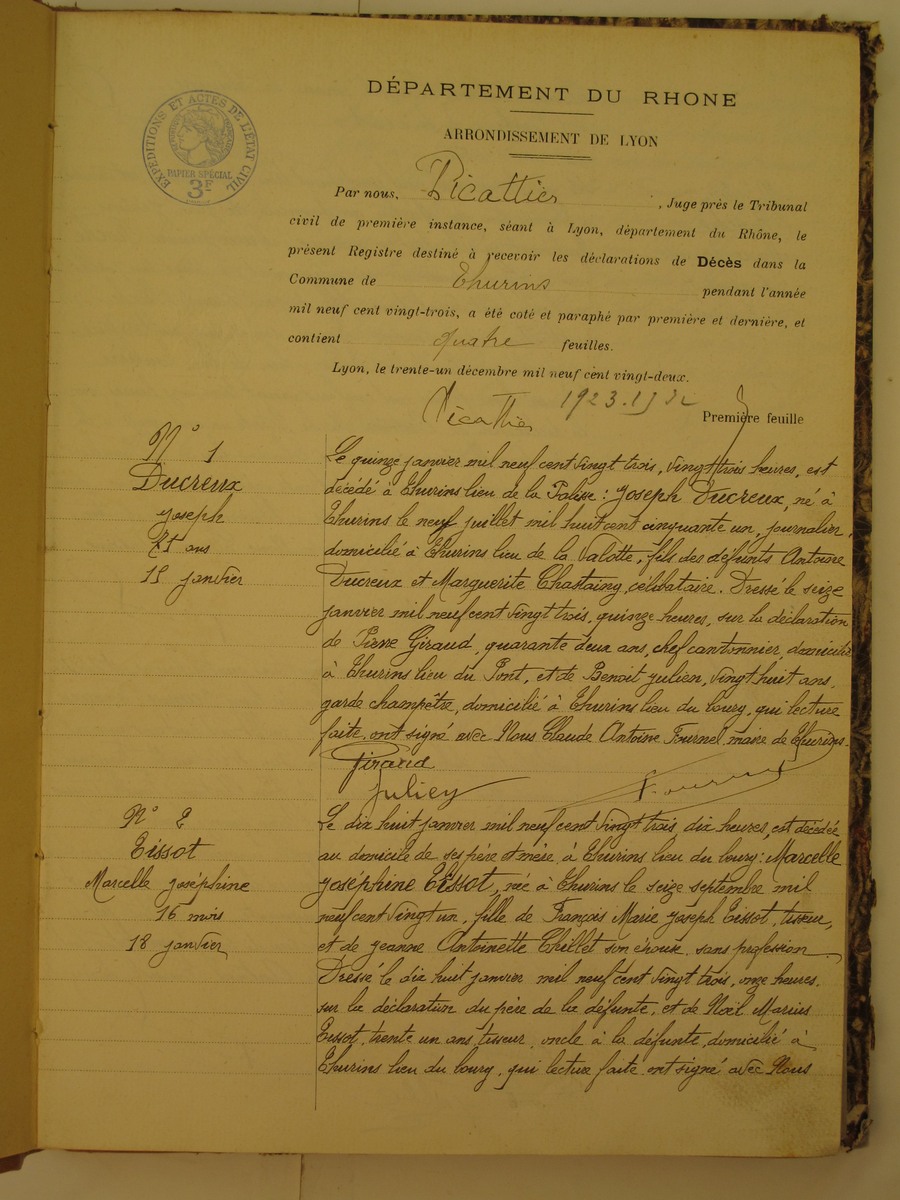 DÉPARTEMENT DU RHONE
ARRONDISSEMENT DE LYON
EXPÉDITIONS ET ACTES DE L'ÉTAT CIVIL
PAPIER SPÉCIAL
3F
Par nous, Picattier, Juge près le Tribunal
civil de première instance, séant à Lyon, département du Rhône, le
présent Registre destiné à recevoir les déclarations de Décès dans la
Commune de Thurins pendant l'année
mil neuf cent vingt-trois, a été coté et paraphé par première et dernière, et
contient quatre feuilles.
Lyon, le trente-un décembre mil neuf cent vingt-deux.
Picattier 1923-1932
Première feuille
N° 1
Ducreux
Joseph
71 ans
15 janvier
Le quinze janvier mil neuf cent vingt trois, vingt trois heures, est
décédé à Thurins lieu de la : Joseph Ducreux, né à
Thurins le neuf juillet mil huit cent cinquante un, journalier,
domicilié à Thurins lieu de la Valotte, fils des défunts Antoine
Ducreux et Marguerite Chastaing, célibataire. Dressé le seize
janvier mil neuf cent vingt trois, quinze heures, sur la déclaration
de Pierre Giraud, quarante deux ans, chef cantonnier, domicilié
à Thurins lieu du Pont, et de Benoit Julien, vingt huit ans,
garde champêtre, domicilié à Thurins lieu du bourg, qui lecture
faite, ont signé avec Nous Claude Antoine Fournel maire de Thurins.
Giraud
Julien Fournel
N° 2
Eissot
Marcelle Joséphine
16 mois
18 janvier
Le dix huit janvier mil neuf cent vingt trois, dix heures, est décédée
au domicile de ses père et mère, à Thurins lieu du bourg : Marcelle
Joséphine Eissot, née à Thurins le seize septembre mil
neuf cent vingt un, fille de François Marie Joseph Eissot, tisseur,
et de Jeanne Antoinette Thillet son épouse, sans profession.
Dressé le dix huit janvier mil neuf cent vingt trois, onze heures,
sur la déclaration du père de la défunte, et de Noël Marius
Eissot, trente un ans, tisseur, oncle à la défunte, domicilié à
Thurins lieu du bourg, qui lecture faite ont signé avec Nous